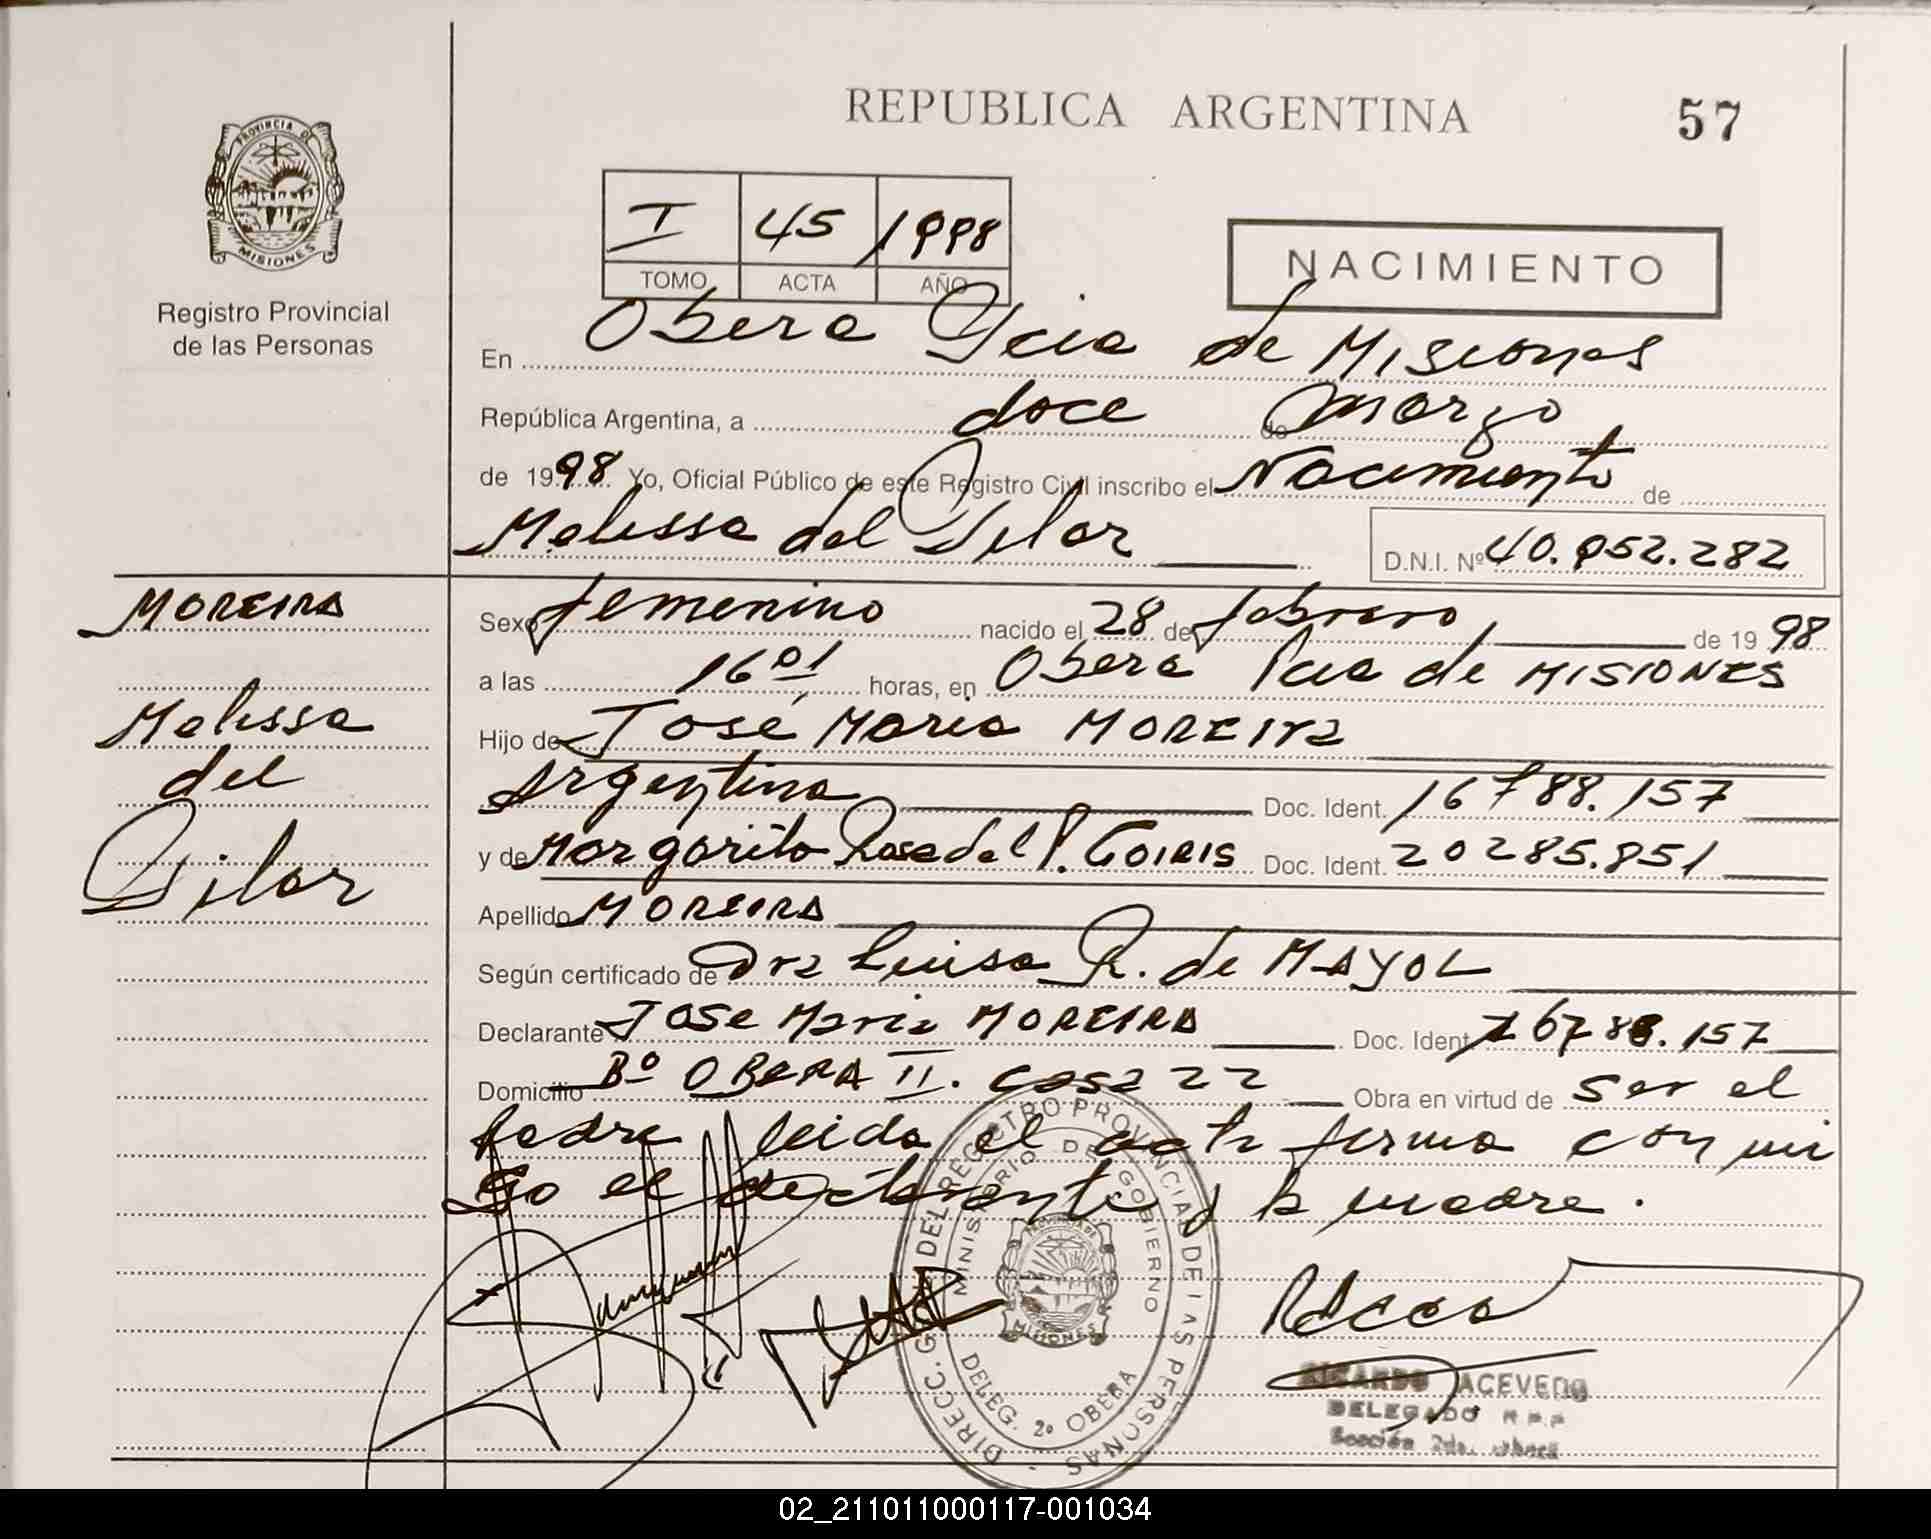 REPUBLICA ARGENTINA
57
PROVINCIA DE
MISIONES
Registro Provincial
de las Personas
I 45 /1998
TOMO ACTA AÑO
NACIMIENTO
En Obera Pcia de Misiones
República Argentina, a doce de Marzo
de 1998 Yo, Oficial Público de este Registro Civil inscribo el Nacimiento de
Melissa del Pilar D.N.I. Nº 40.952.282
MOREIRA
Melissa
del
Pilar
Sexo femenino nacido el 28 de febrero de 1998
a las 16 01 horas, en Obera Pcia de MISIONES
Hijo de José Maria MOREIra
Argentina Doc. Ident. 16788.157
y de Margarita Rosa del P. GOIRIS Doc. Ident. 20285.851
Apellido MOREIRA
Según certificado de Dra Luisa R. de MAYOL
Declarante Jose Maria MOREIRA Doc. Ident. 16788.157
Domicilio Bº OBERA II. casa 22 Obra en virtud de ser el
padre leida el acta firma con mi
go el declarante y la madre.
DIRECC. GRAL DEL REGISTRO PROVINCIAL DE LAS PERSONAS
MINISTERIO DE GOBIERNO
PROVINCIA DE
MISIONES
DELEG. 2º OBERA
RICARDO ACEVEDO
DELEGADO R.P.P
Sección 2da. Obera
02_211011000117-001034